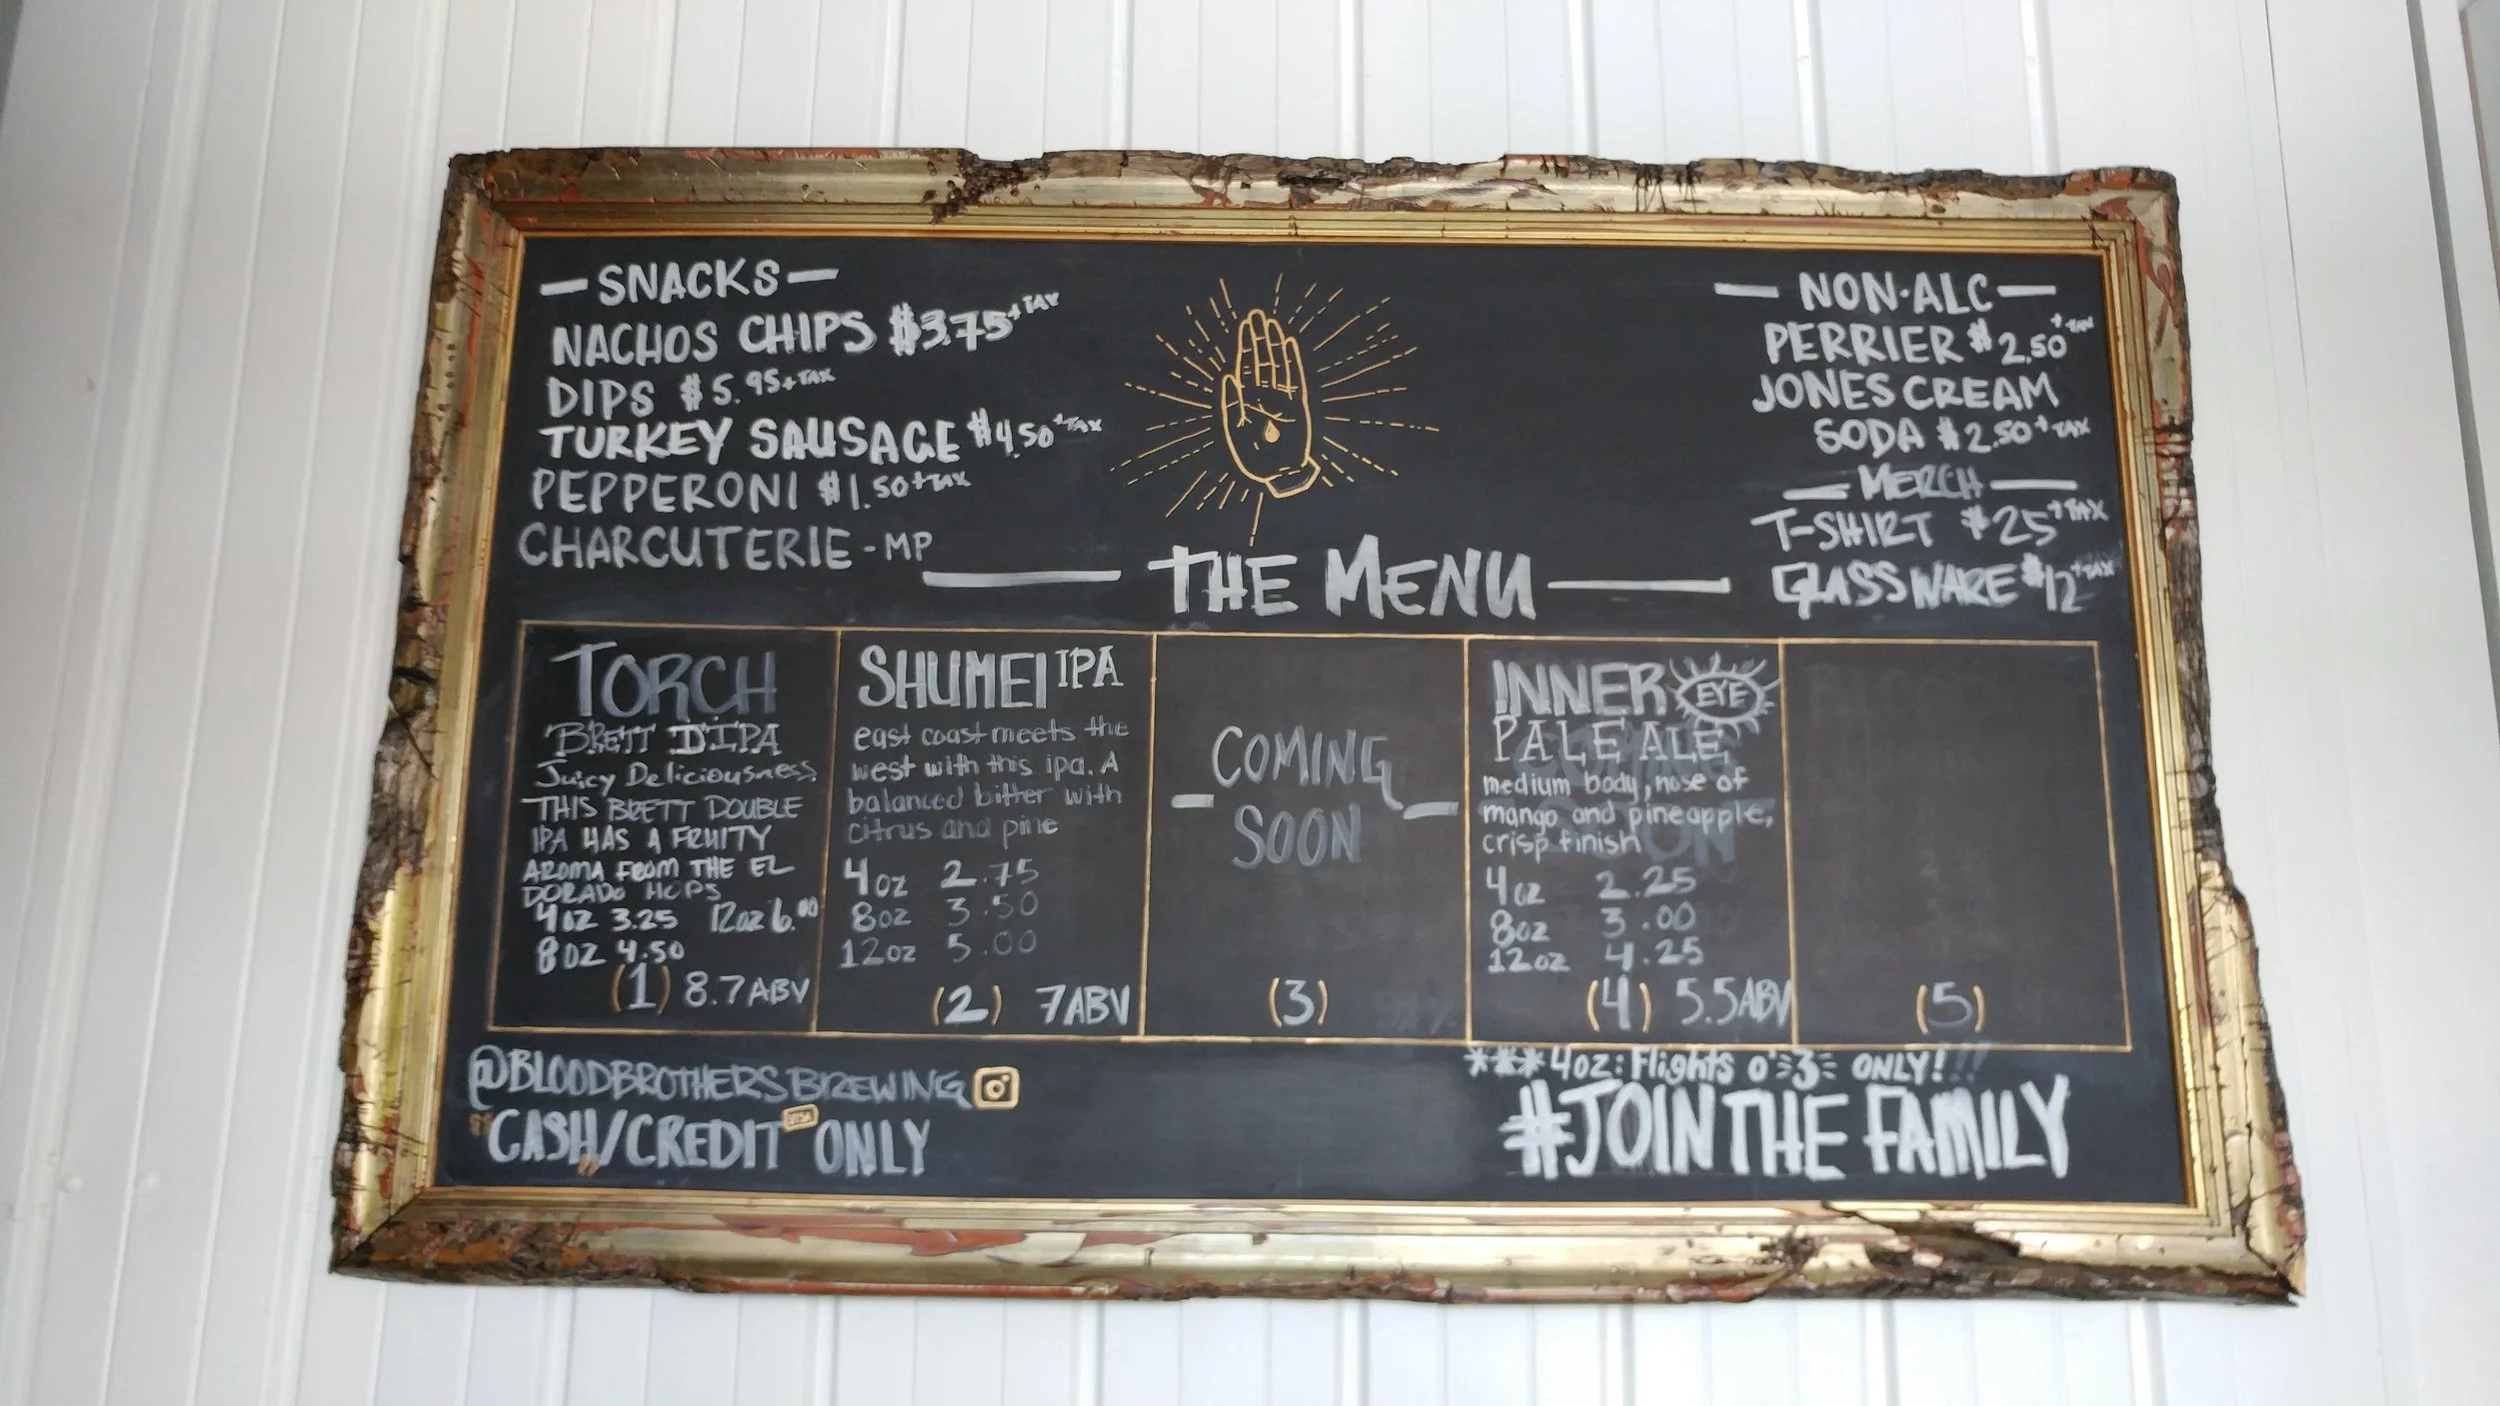 SNACKS
NACHOS CHIPS $3.75 + TAX
DIPS $5.95 + TAX
TURKEY SAUSAGE $4.50 + TAX
PEPPERONI $1.50 + TAX
CHARCUTERIE - MP
NON·ALC
PERRIER $2.50 + TAX
JONES CREAM
SODA $2.50 + TAX
MERCH
T-SHIRT $25 + TAX
GLASSWARE $12 + TAX
THE MENU
TORCH
BRETT DIPA
Juicy Deliciousness
THIS BRETT DOUBLE
IPA HAS A FRUITY
AROMA FROM THE EL
DORADO HOPS
4OZ 3.25 12OZ 6.00
8OZ 4.50
(1) 8.7ABV
SHUMEI IPA
east coast meets the
west with this ipa. A
balanced bitter with
citrus and pine
4oz 2.75
8oz 3.50
12oz 5.00
(2) 7ABV
COMING
SOON
(3)
INNER EYE
PALE ALE
medium body, nose of
mango and pineapple,
crisp finish
4oz 2.25
8oz 3.00
12oz 4.25
(4) 5.5ABV
(5)
@BLOODBROTHERSBREWING
CASH/CREDIT VISA ONLY
***4oz: Flights o' 3 ONLY!!!
#JOINTHE FAMILY